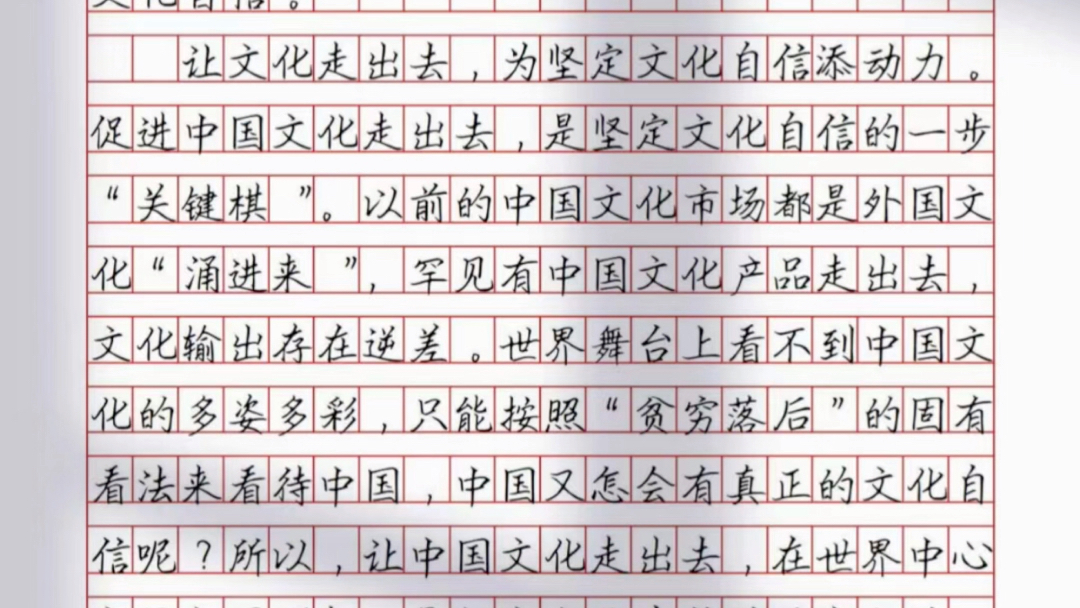 文化自信。
让文化走出去，为坚定文化自信添动力。
促进中国文化走出去，是坚定文化自信的一步
“关键棋”。以前的中国文化市场都是外国文
化“涌进来”，罕见有中国文化产品走出去，
文化输出存在逆差。世界舞台上看不到中国文
化的多姿多彩，只能按照“贫穷落后”的固有
看法来看待中国，中国又怎会有真正的文化自
信呢？所以，让中国文化走出去，在世界中心